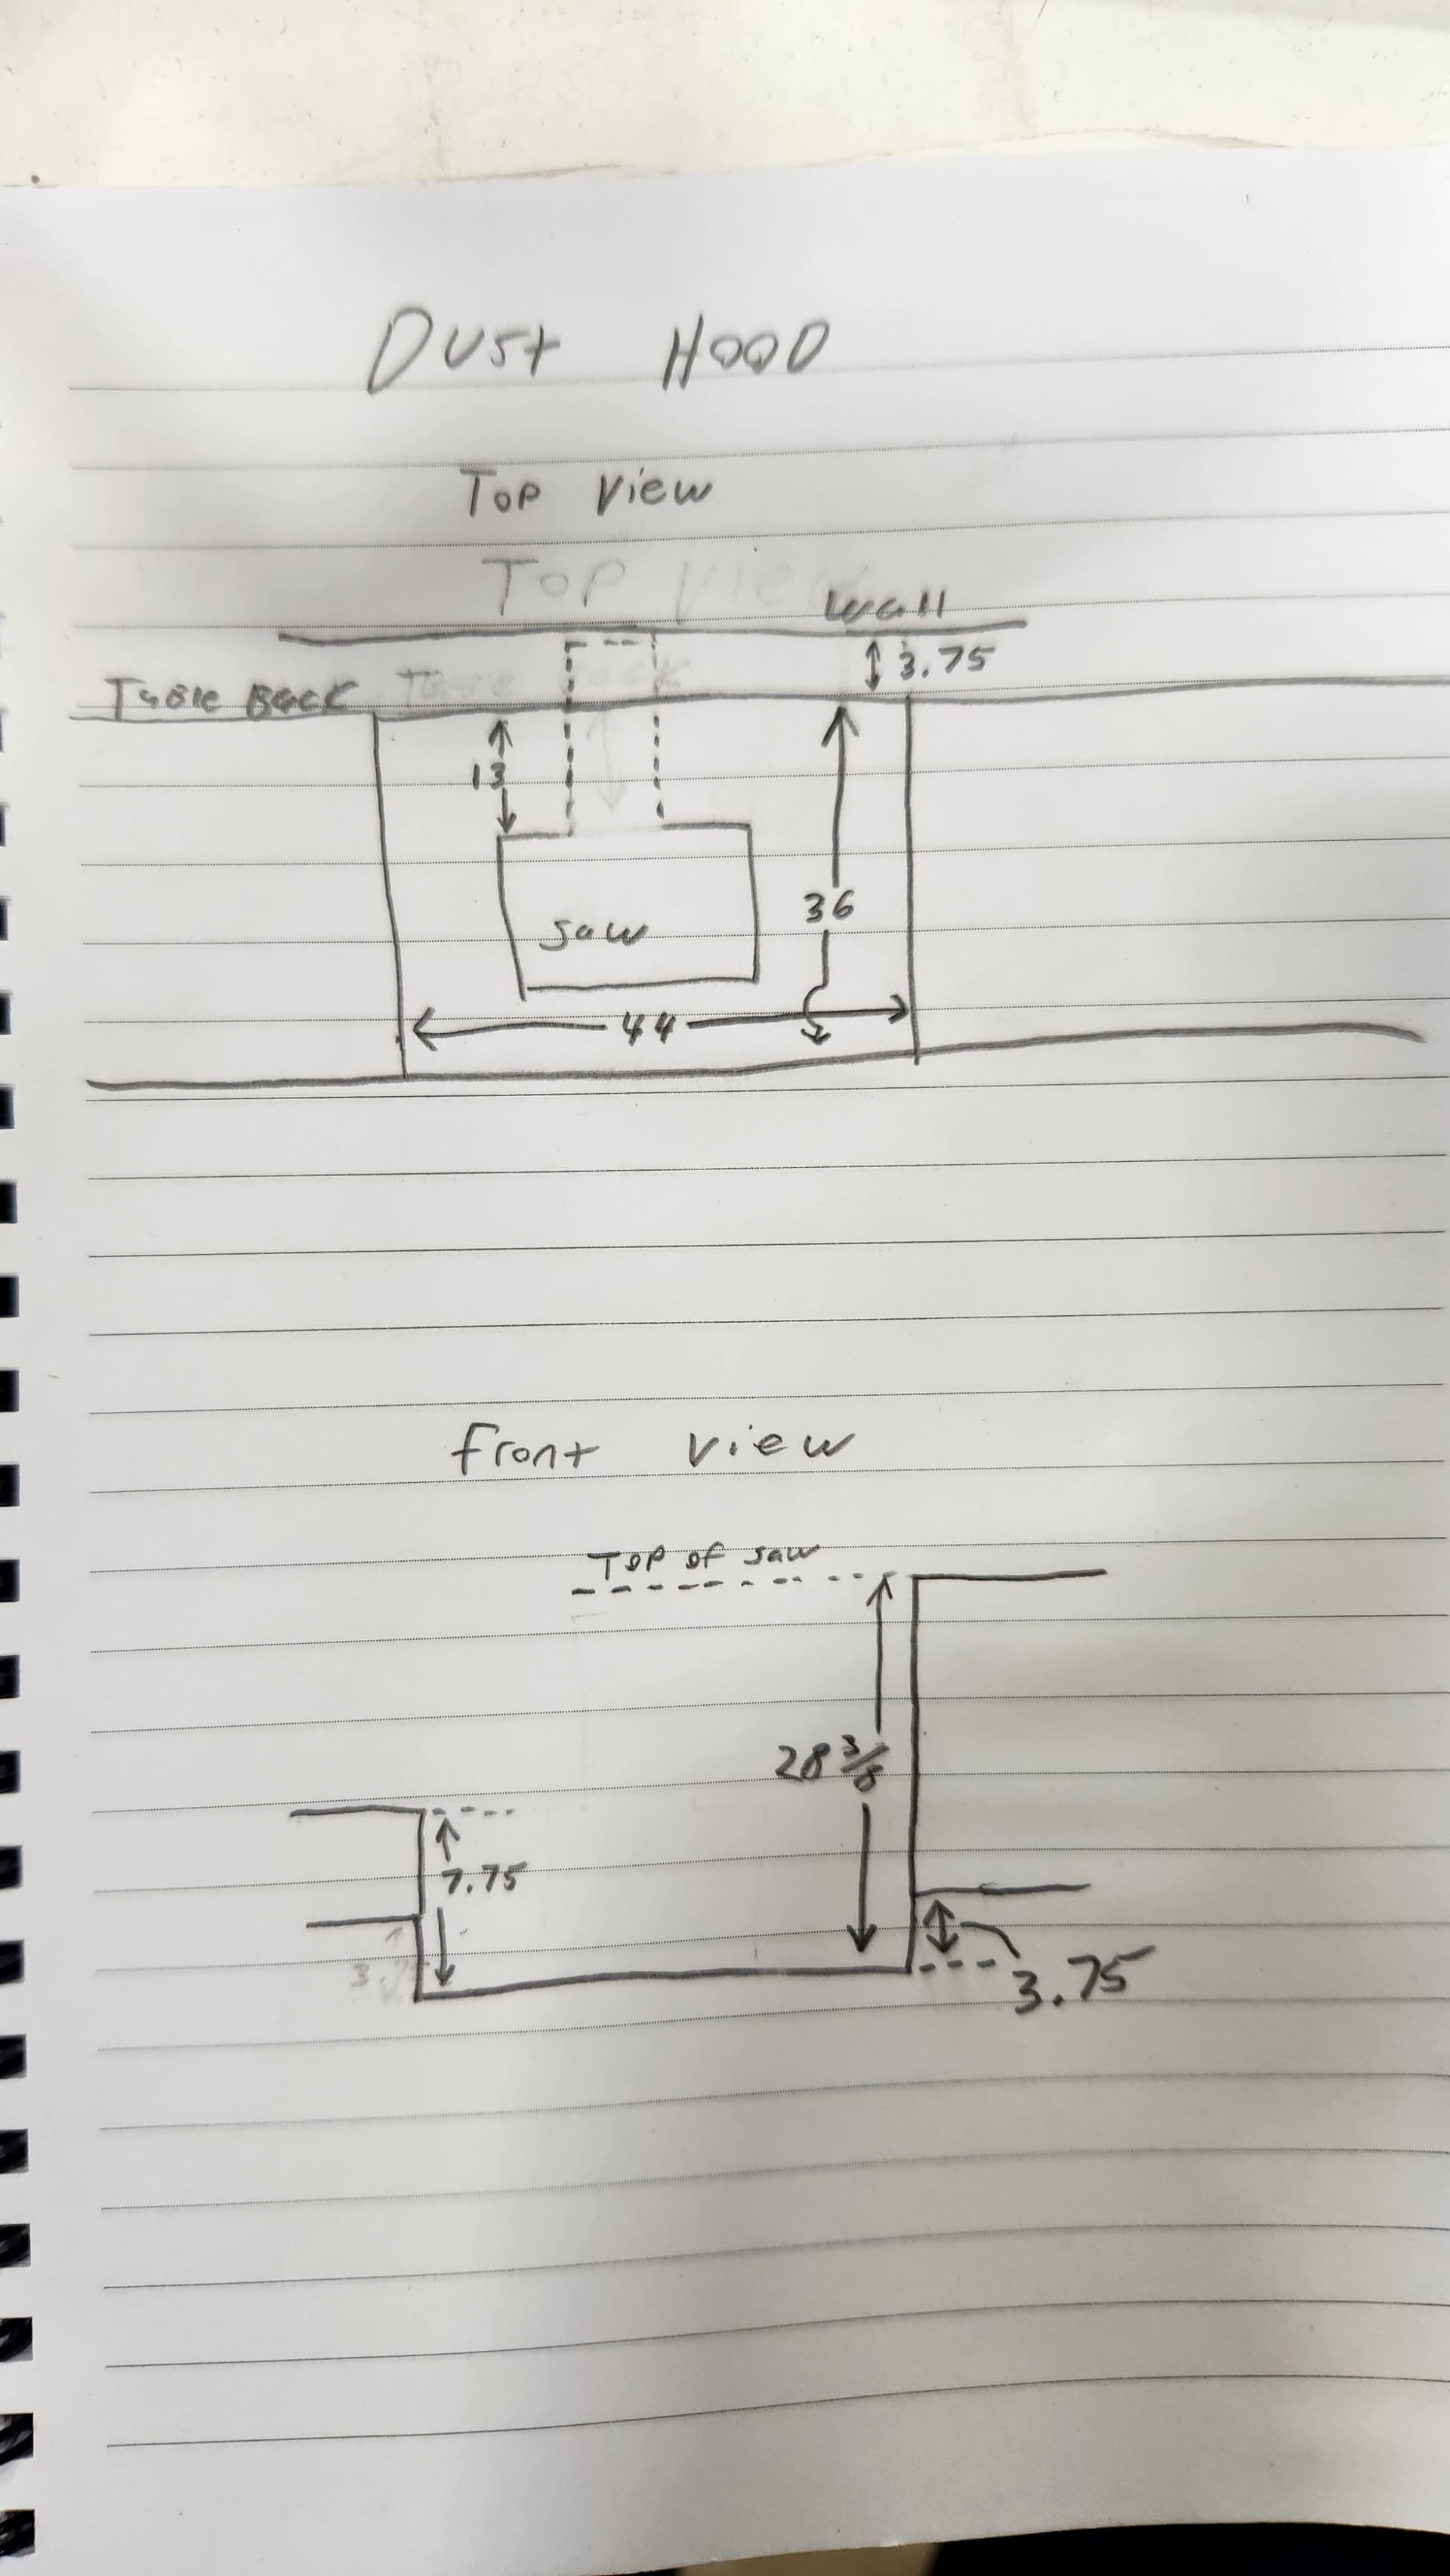 Dust HOOD
Top View
Top View
wall
3.75
Table Back
13
saw
36
44
front view
Top of saw
28 3/8
7.75
3.75